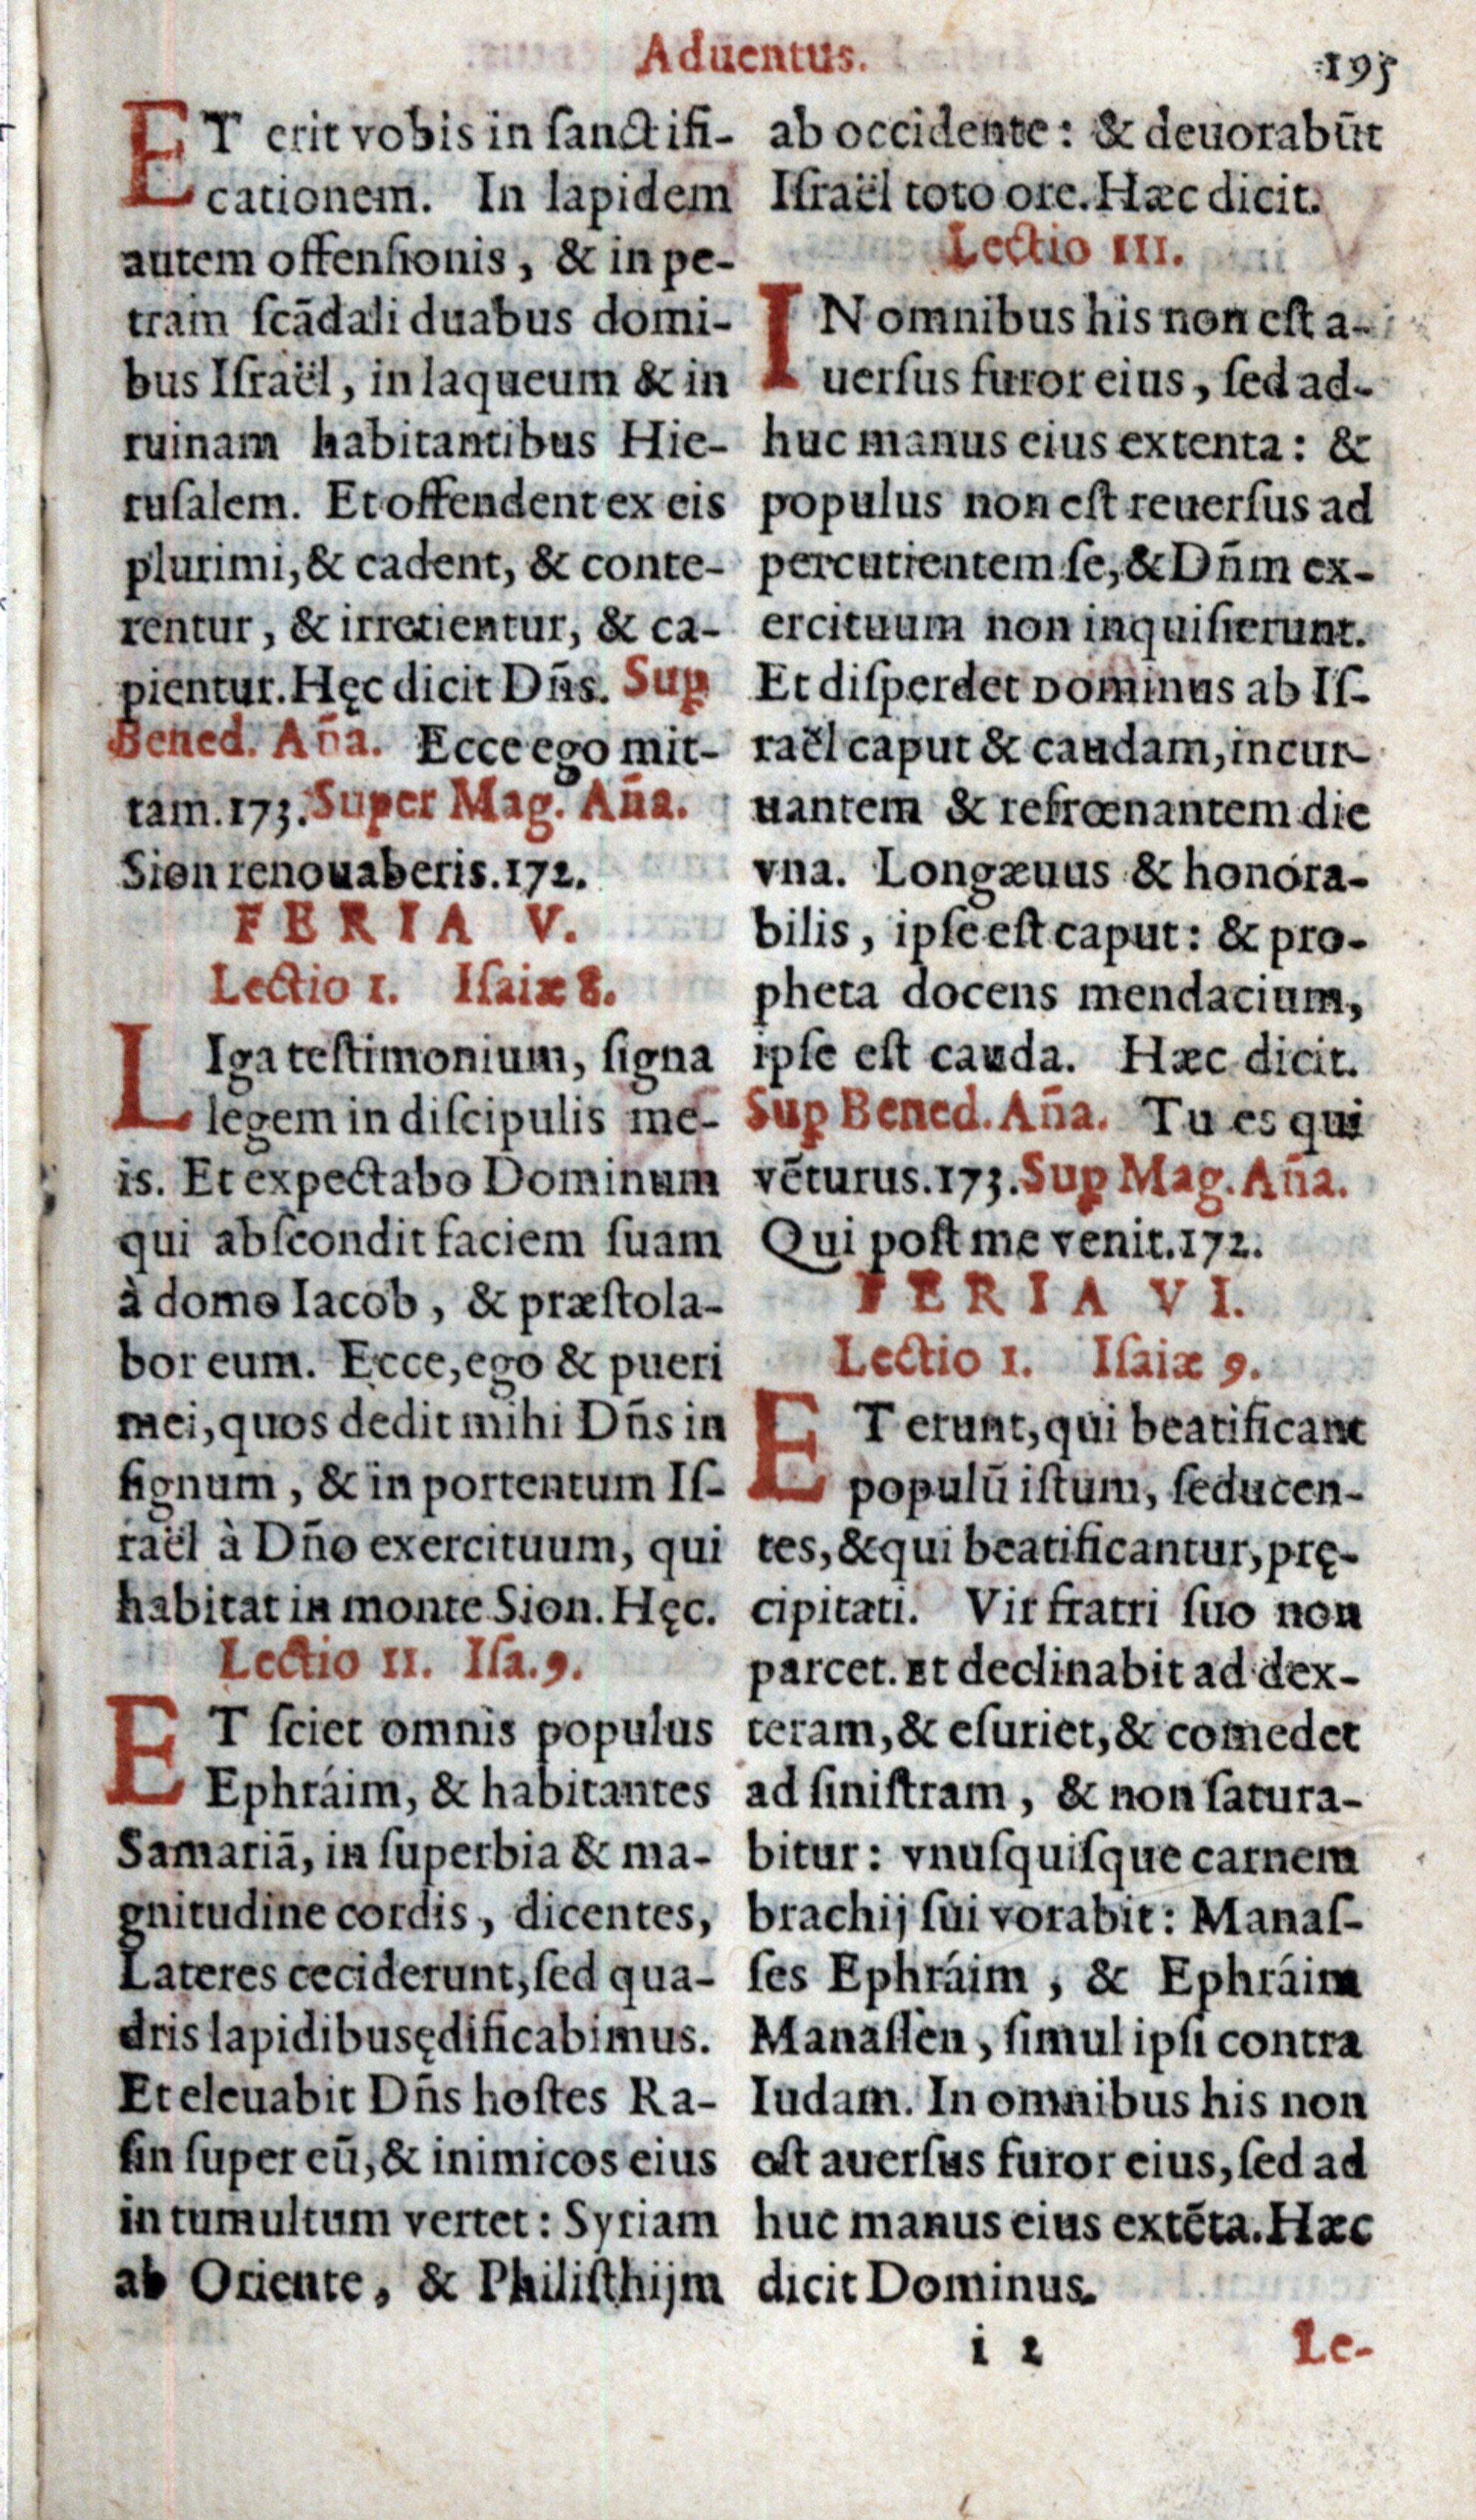 Aduentus.
195
ET erit vobis in ſanctifi-
cationem. In lapidem
autem offenſionis, & in pe-
tram ſcãdali duabus domi-
bus Iſraël, in laqueum & in
ruinam habitantibus Hie-
ruſalem. Et offendent ex eis
plurimi, & cadent, & conte-
rentur, & irretientur, & ca-
pientur. Hęc dicit Dñs. Suꝑ
Bened. Aña. Ecce ego mit-
tam. 173. Super Mag. Aña.
Sion renouaberis. 172.
FERIA V.
Lectio I. Iſaiæ 8.
LIga teſtimonium, ſigna
legem in diſcipulis me-
is. Et expectabo Dominum
qui abſcondit faciem ſuam
à domo Iacob, & præſtola-
bor eum. Ecce, ego & pueri
mei, quos dedit mihi Dñs in
ſignum, & in portentum Iſ-
raël à Dño exercituum, qui
habitat in monte Sion. Hęc.
Lectio II. Iſa. 9.
ET ſciet omnis populus
Ephráim, & habitantes
Samariã, in ſuperbia & ma-
gnitudine cordis, dicentes,
Lateres ceciderunt, ſed qua-
dris lapidibus ędificabimus.
Et eleuabit Dñs hoſtes Ra-
ſin ſuper eũ, & inimicos eius
in tumultum vertet: Syriam
ab Oriente, & Philiſthijm
ab occidente: & deuorabũt
Iſraël toto ore. Hæc dicit.
Lectio III.
IN omnibus his non eſt a-
uerſus furor eius, ſed ad-
huc manus eius extenta: &
populus non eſt reuerſus ad
percutientem ſe, & Dñm ex-
ercituum non inquiſierunt.
Et diſperdet Dominus ab Iſ-
raël caput & caudam, incur-
uantem & refrœnantem die
vna. Longæuus & honora-
bilis, ipſe eſt caput: & pro-
pheta docens mendacium,
ipſe eſt cauda. Hæc dicit.
Suꝑ Bened. Aña. Tu es qui
vẽturus. 173. Suꝑ Mag. Aña.
Qui poſt me venit. 172.
FERIA VI.
Lectio I. Iſaiæ 9.
ET erunt, qui beatificant
populũ iſtum, ſeducen-
tes, & qui beatificantur, prę-
cipitati. Vir fratri ſuo non
parcet. Et declinabit ad dex-
teram, & eſuriet, & comedet
ad ſiniſtram, & non ſatura-
bitur: vnuſquiſque carnem
brachij ſui vorabit: Manaſ-
ſes Ephráim, & Ephráim
Manaſſen, ſimul ipſi contra
Iudam. In omnibus his non
eſt auerſus furor eius, ſed ad
huc manus eius extẽta. Hæc
dicit Dominus.
i 2
Le-